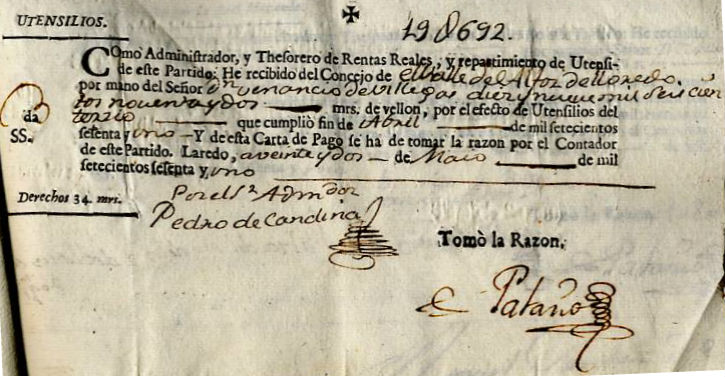 UTENSILIOS.
✠
19ↀ692.
COmo Administrador, y Thesorero de Rentas Reales, y repartimiento de Utensi-
de este Partido: He recibido del Concejo de el Valle del Alfoz de lloredo.
por mano del Señor Dn Venancio de Villegas diez y nueve mil seis cien
tos noventa y dos mrs. de vellon, por el efecto de Utensilios del
da
terzio que cumplió fin de Abril de mil setecientos
SS.
sesenta y uno -Y de esta Carta de Pago se ha de tomar la razon por el Contador
de este Partido. Laredo, a veinte y dos de Maio de mil
setecientos sesenta y, uno
Derechos 34. mrs.
Por el Sr Admdor
Pedro de Candina
Tomò la Razon,
Pataño